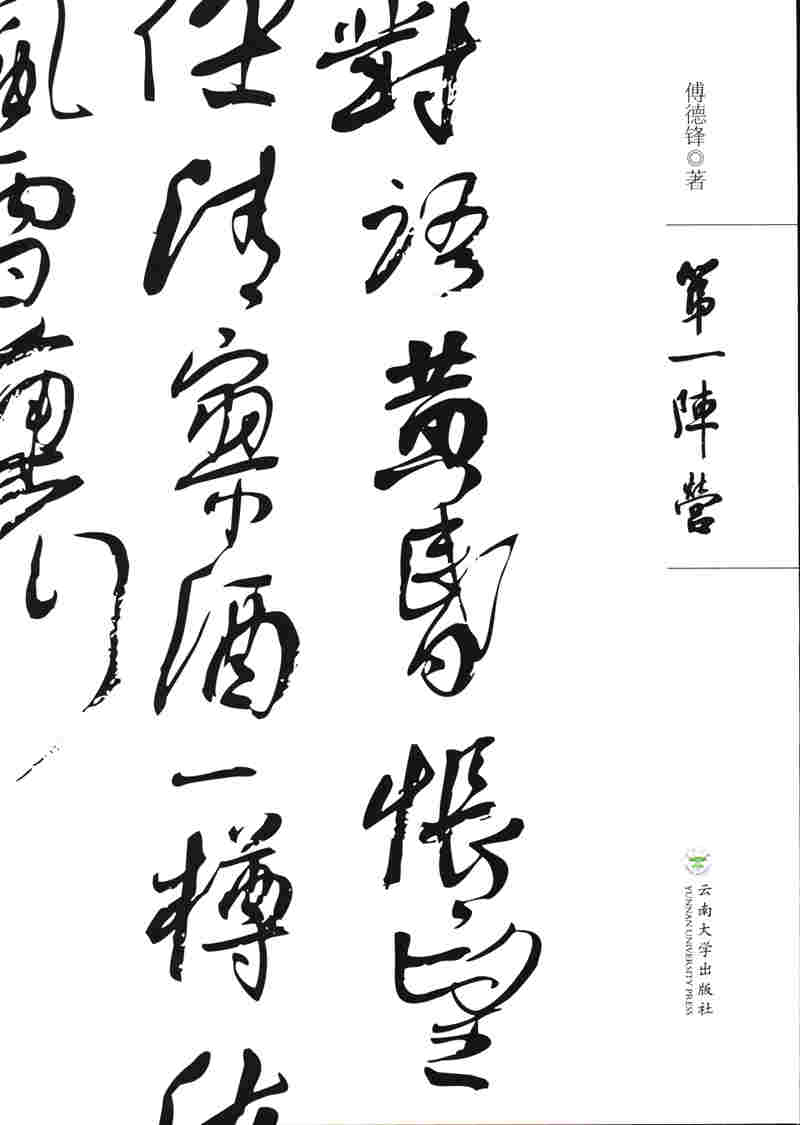 傅德锋◎著
第一陣營
云南大学出版社
YUNNAN UNIVERSITY PRESS
對語黄昏悵望
清寧酒一樽
風雪
行